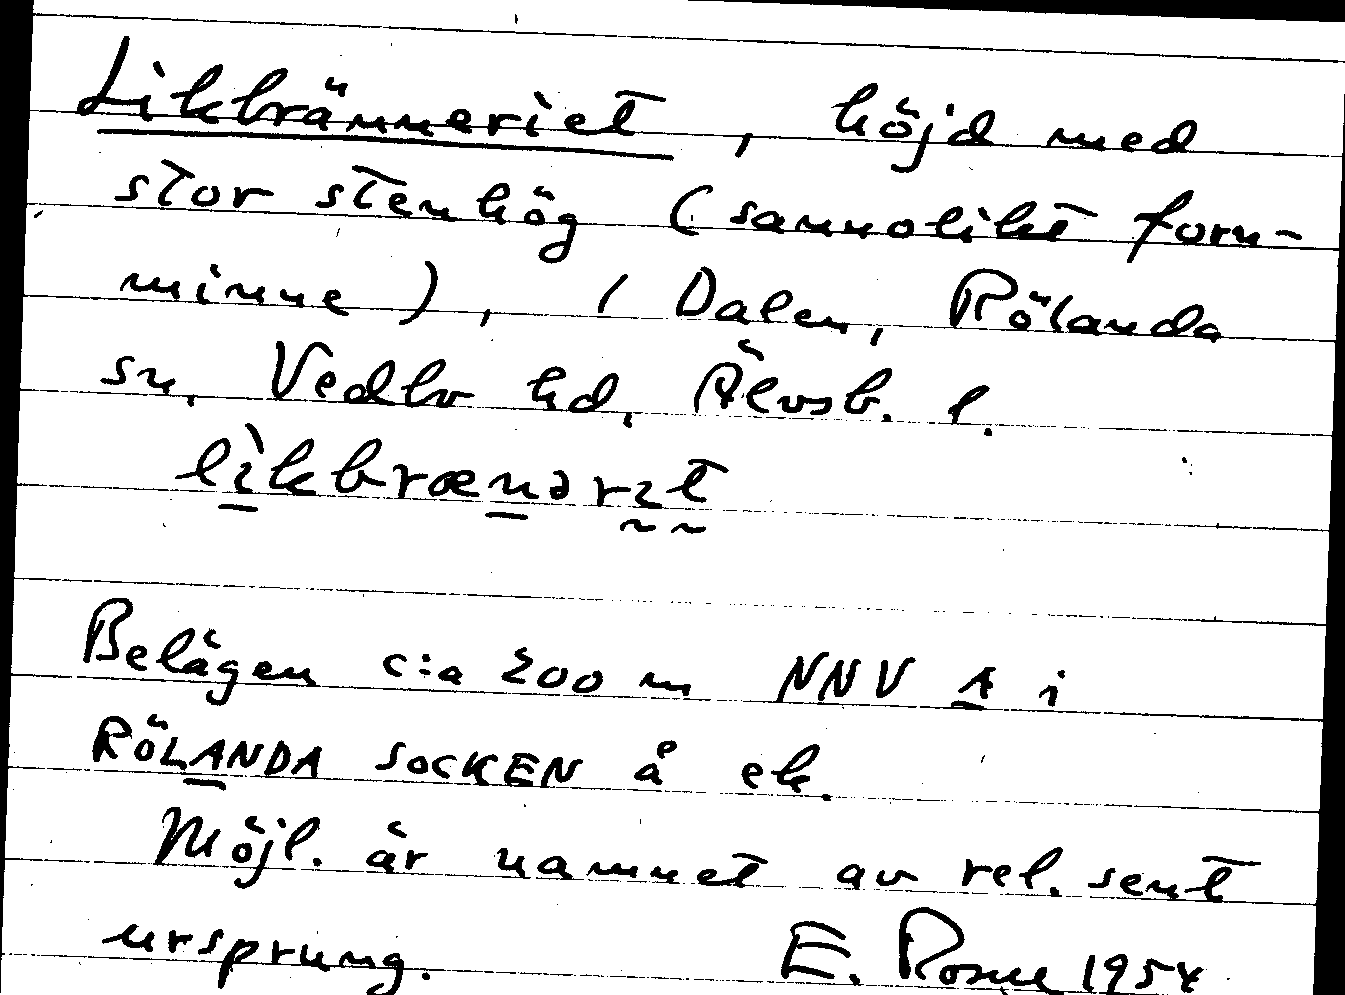 Likbränneriet, höjd med
stor stenhög (sannolikt forn-
minne), i Dalen, Rölanda
sn, Vedbo hd, Älvsb. l.
likbrænərɪt
Belägen c:a 200 m NNV A i
RÖLANDA SOCKEN å ek.
Möjl. är namnet av rel. sent
ursprung. E. Rosell 1954